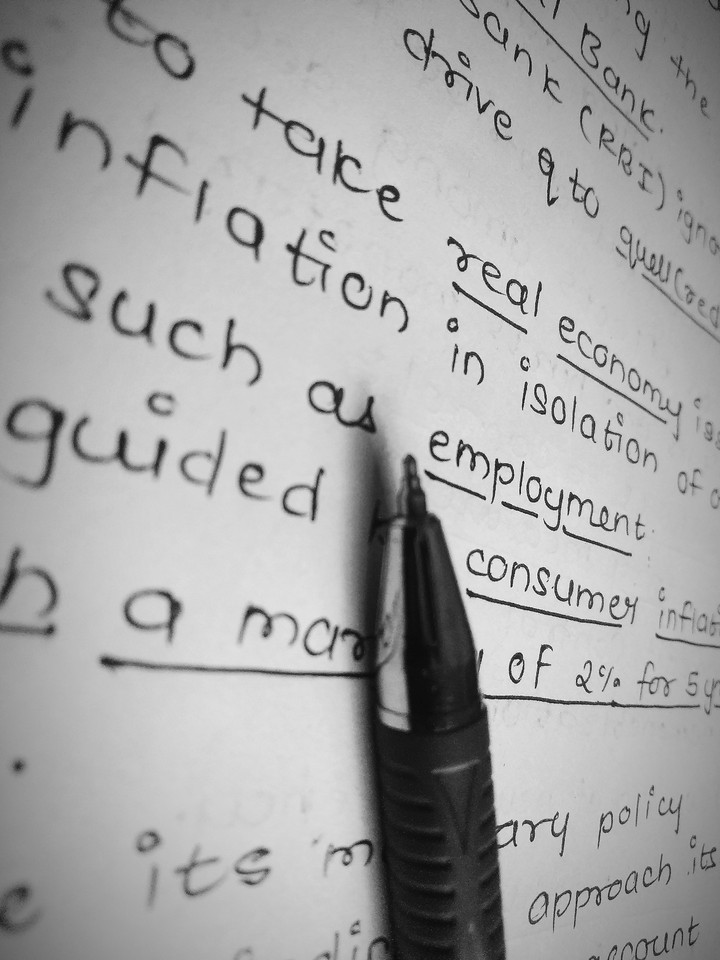 the
Bank.
ank (RBI) igno
drive q to quell (red
to take real economy iss
inflation in isolation of
such as employment.
guided consumer inflati
n a mar of 2% for 5 y
its m ary policy
approach its
account